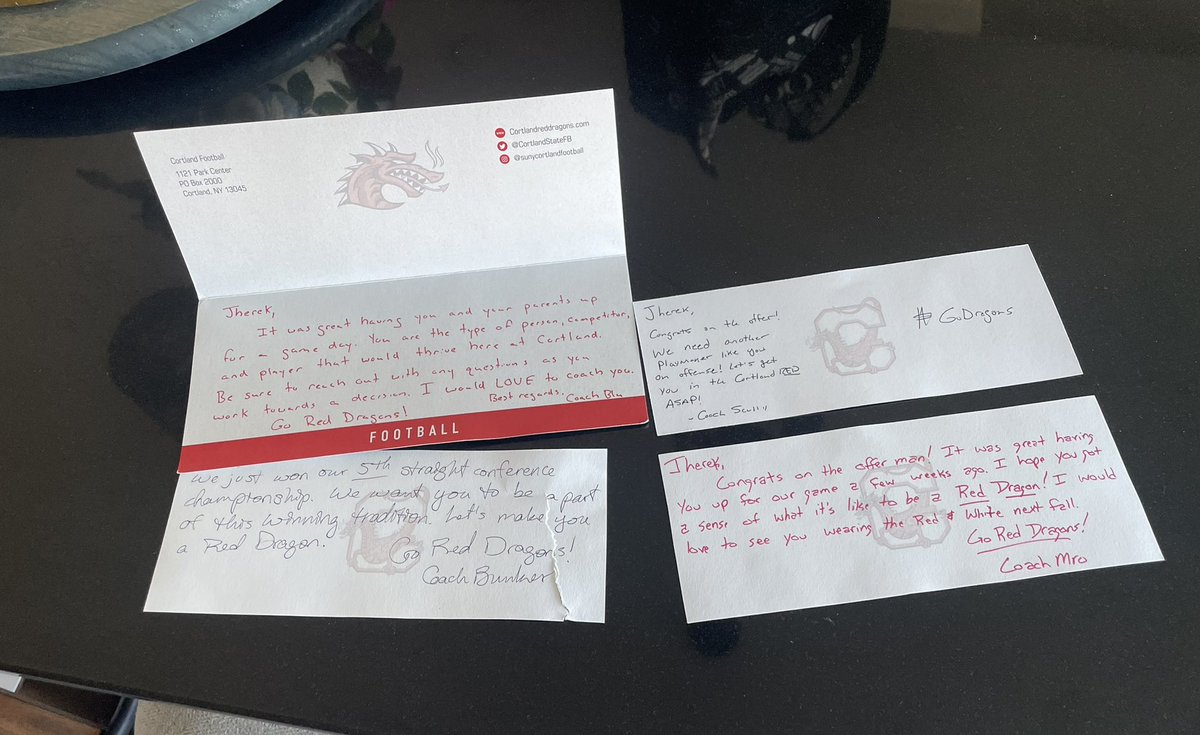 Cortland Football
1121 Park Center
PO Box 2000
Cortland, NY 13045
Cortlandreddragons.com
@CortlandStateFB
@sunycortlandfootball
Jherek,
It was great having you and your parents up
for a game day. You are the type of person, competitor,
and player that would thrive here at Cortland.
Be sure to reach out with any questions as you
work towards a decision. I would LOVE to coach you.
Best regards, Coach Blu
Go Red Dragons!
FOOTBALL
We just won our 5th straight conference
championship. We want you to be a part
of this winning tradition. Let's make you
a Red Dragon.
Go Red Dragons!
Coach
Jherek,
Congrats on the offer!
We need another
Playmaker like you
on offense! Let's get
you in the Cortland RED
ASAP!
- Coach
# GoDragons
Jherek,
Congrats on the offer man! It was great having
you up for our game a few weeks ago. I hope you got
a sense of what it's like to be a Red Dragon! I would
love to see you wearing the Red & White next fall.
Go Red Dragons!
Coach Mro